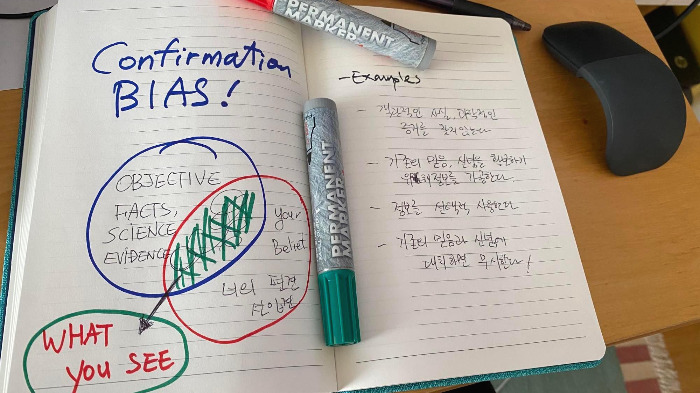 Confirmation
BIAS!
OBJECTIVE
FACTS,
SCIENCE
EVIDENCE
Your
Belief
너의 편견
선입견
WHAT
YOU SEE
PERMANENT
MARKER
PERMANENT
MARKER
- Examples
- 객관적인 사실, 과학적인
증거를
- 기존의 믿음, 신념을
위해 정보를 가공한다.
- 정보를 선택적 사용한다.
- 기존의 믿음과 신념과
대치되면 무시한다!